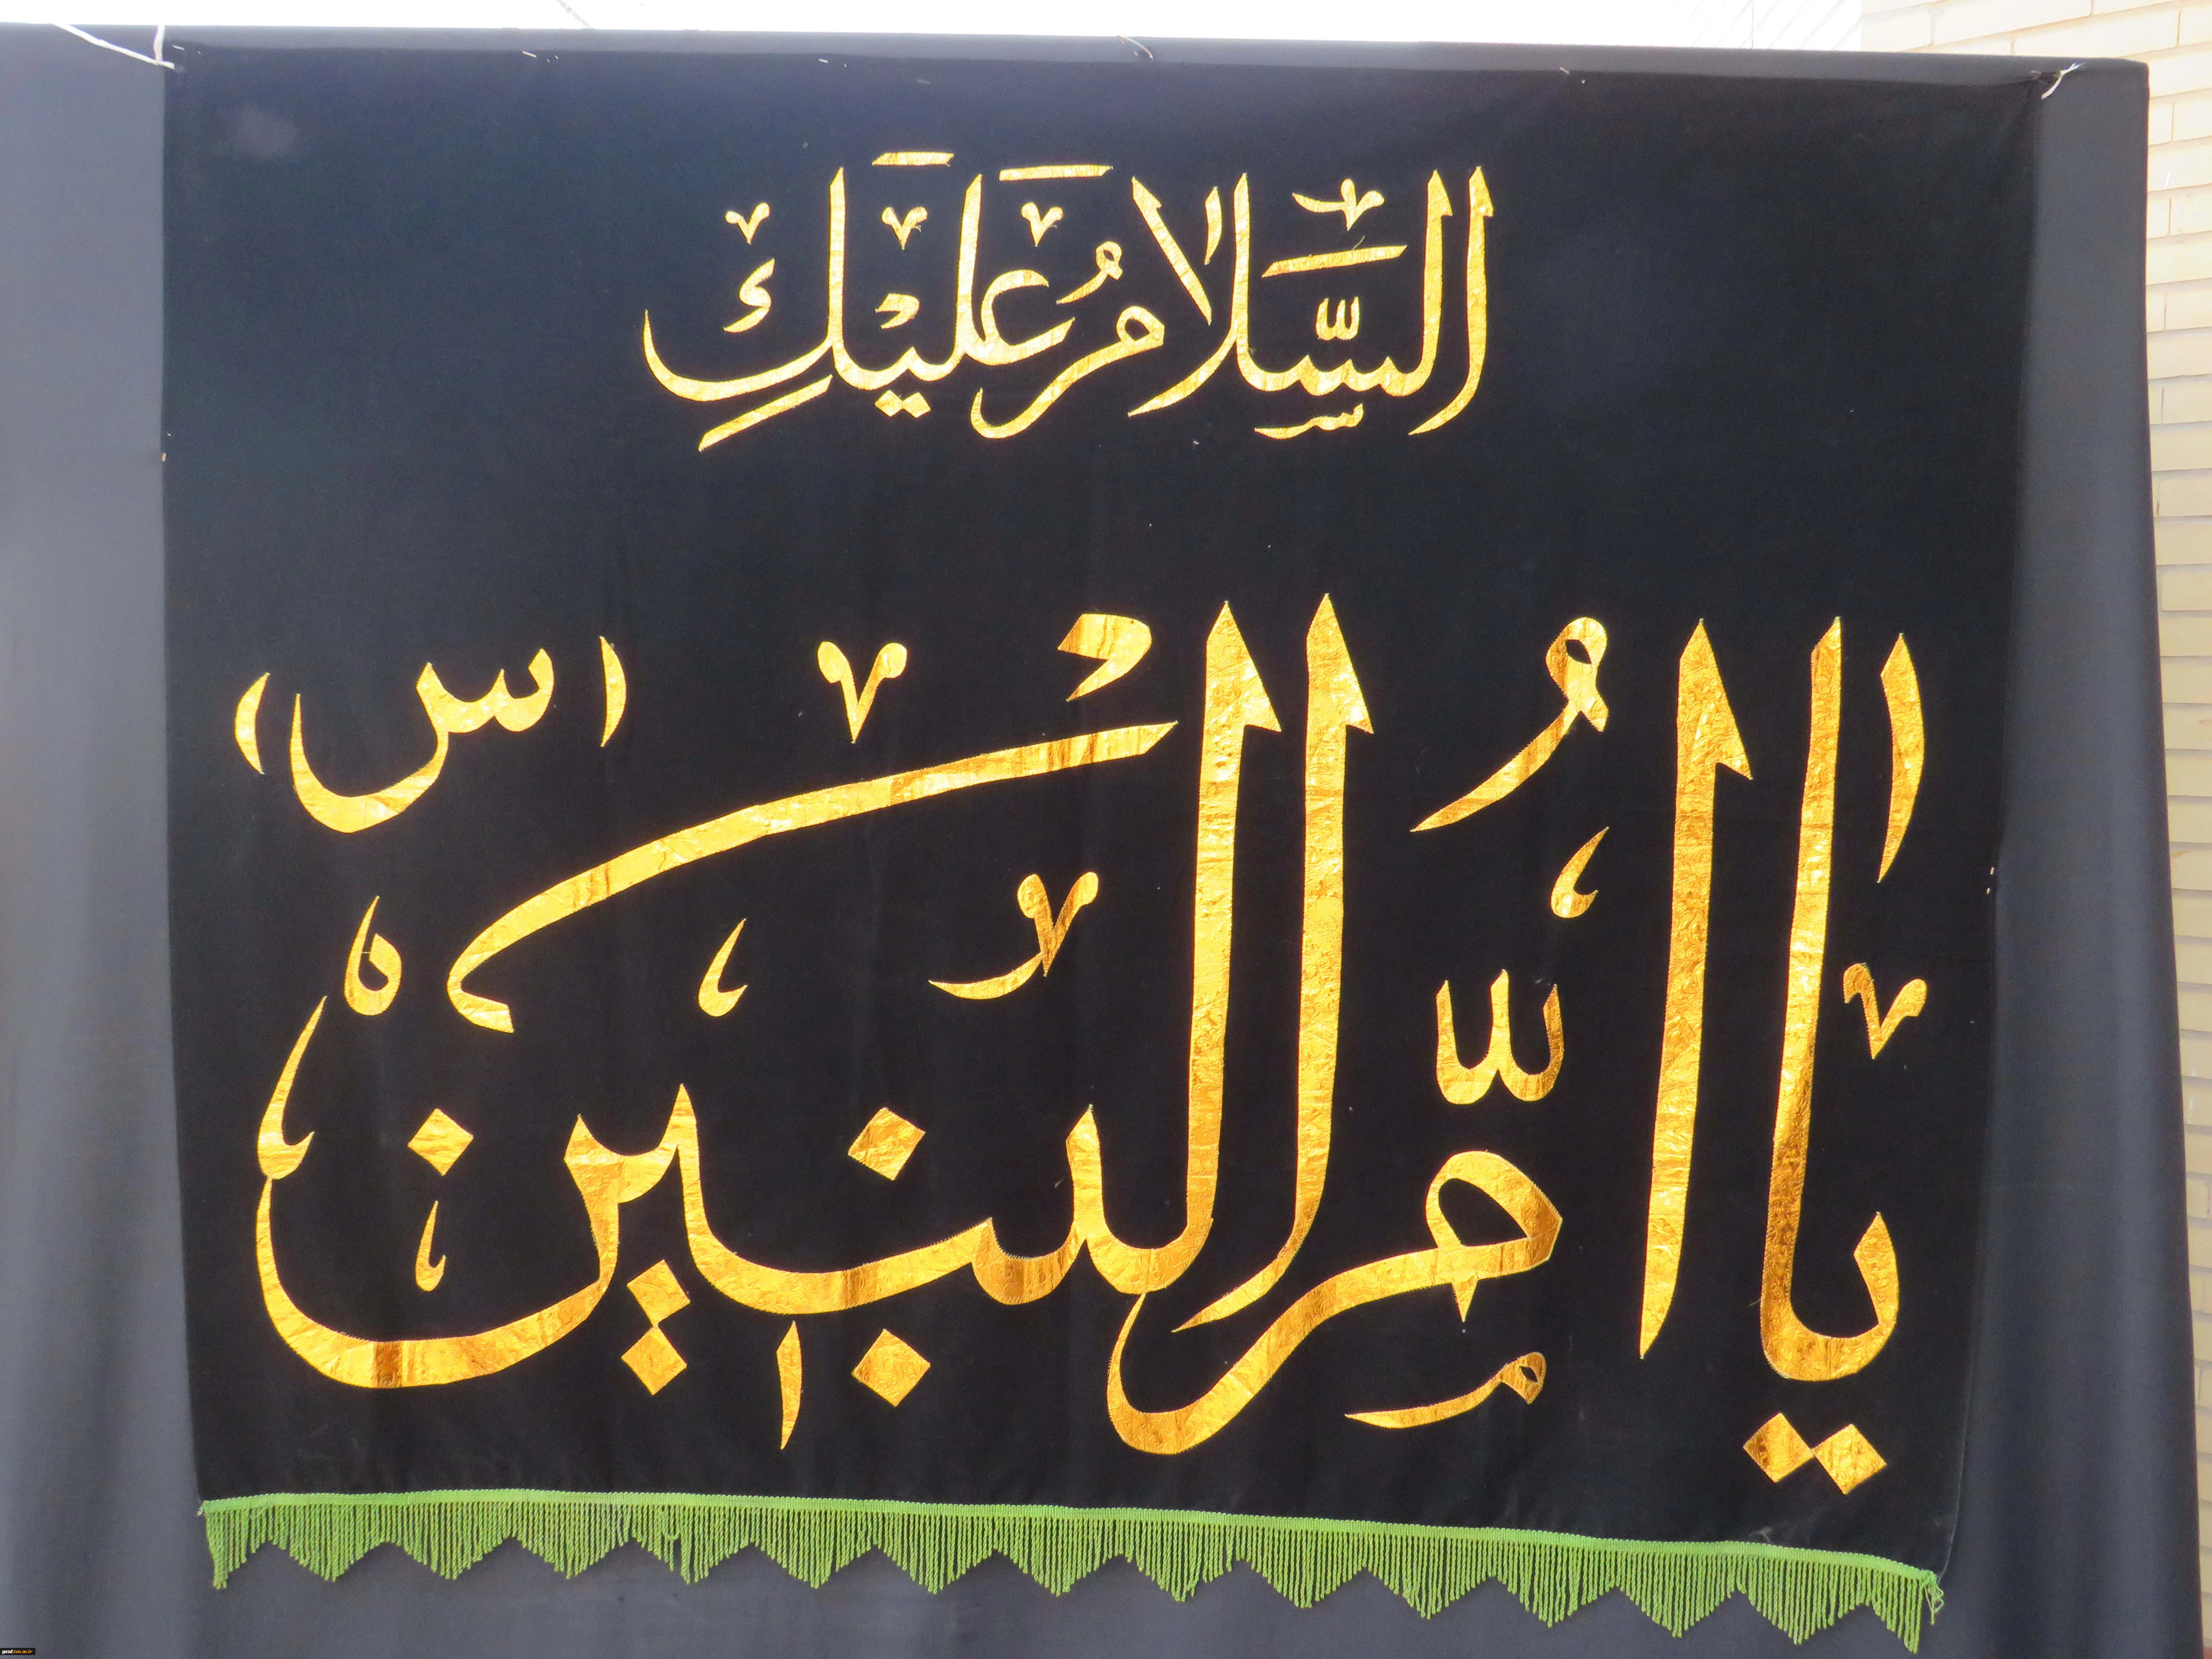 السَّلامُ عَلَيْكِ
يا اُمَّ الْبَنينَ (س)